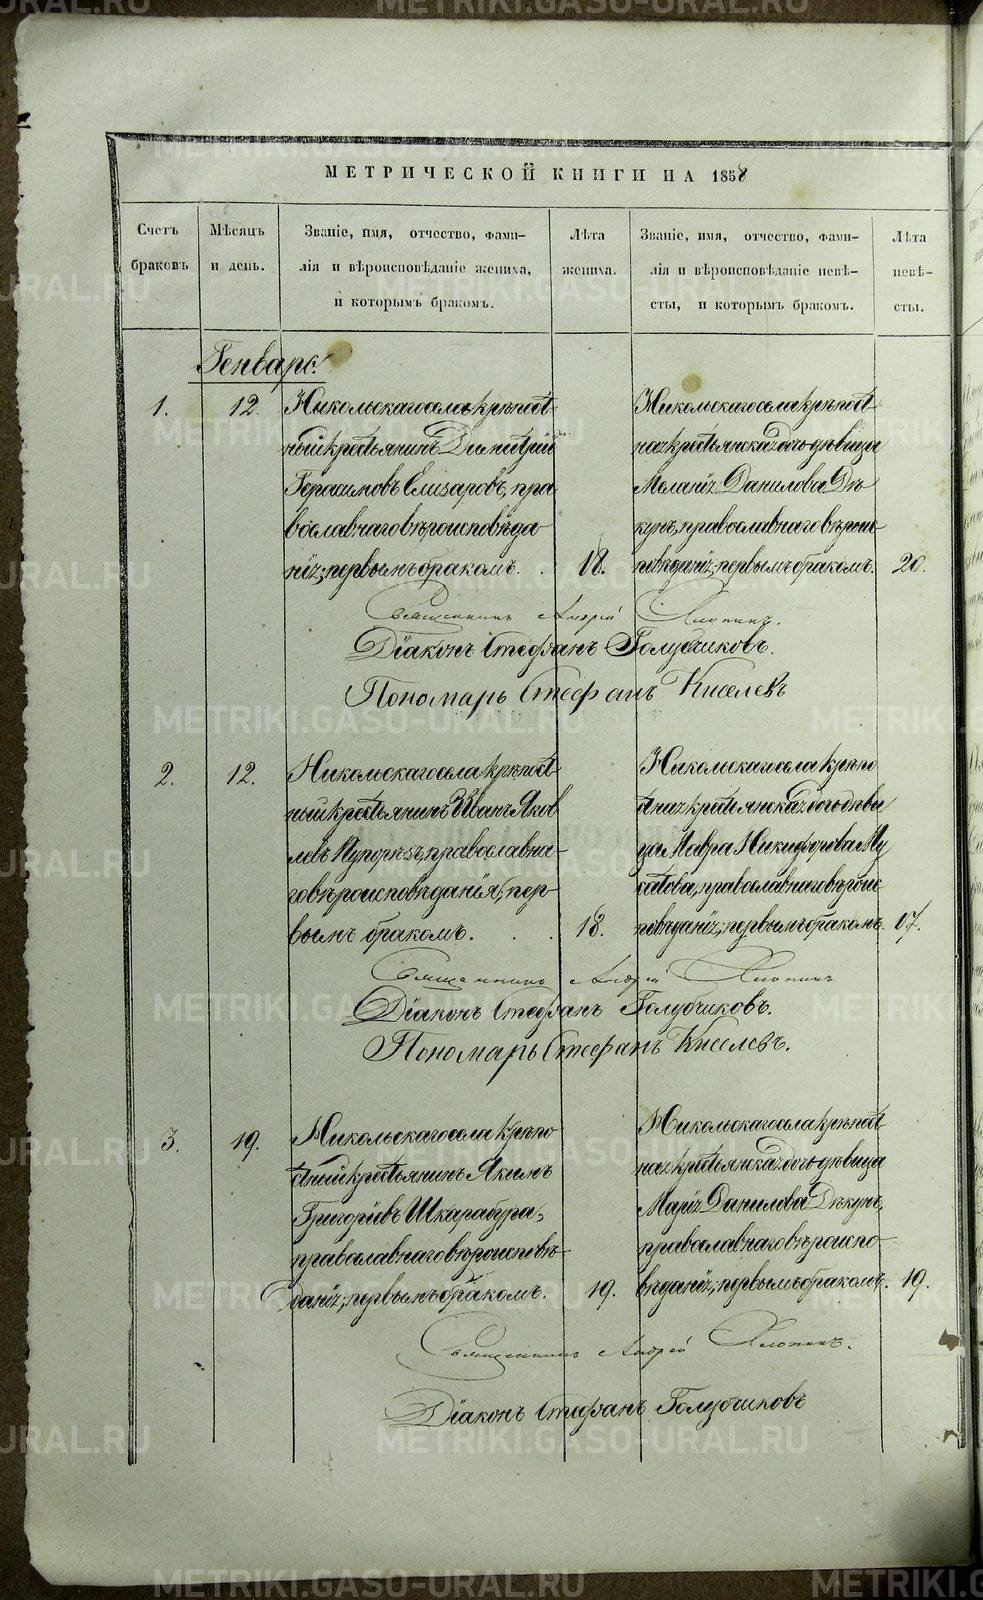 МЕТРИЧЕСКОЙ КНИГИ НА 1858
Счетъ браковъ
Мѣсяцъ и день.
Званіе, имя, отчество, фами-
лія и вѣроисповѣданіе жениха,
и которымъ бракомъ.
Лѣта жениха.
Званіе, имя, отчество, фами-
лія и вѣроисповѣданіе невѣ-
сты, и которымъ бракомъ.
Лѣта невѣ-
сты.
Генварь.
1.
12.
Никольскаго села крѣпост
ный крестьянинъ Димитрій
Герасимовъ Елизаровъ, пра
вославнаго вѣроисповѣда
нія; первымъ бракомъ.
18.
Никольскаго села крѣпост
ная крестьянская дочь дѣвица
Меланія Данилова Дѣ
кунъ, православнаго вѣрои
повѣданія; первымъ бракомъ.
20.
Священникъ Андрей Хлопинъ.
Діаконъ Стефанъ Голубчиковъ.
Пономарь Стефанъ Киселевъ
2.
12.
Никольскаго села крѣпост
ный крестьянинъ Иванъ Яков
левъ православна
го вѣроисповѣданія; пер
вымъ бракомъ.
18.
Никольскаго села крѣпо
стная крестьянская дочь дѣви
ца Мавра Никифорова Му
сатова, православнаго вѣроис
повѣданія; первымъ бракомъ.
17.
Священникъ Андрей Хлопинъ.
Діаконъ Стефанъ Голубчиковъ.
Пономарь Стефанъ Киселевъ.
3.
19.
Никольскаго села крѣпо
стный крестьянинъ Якимъ
Григоріевъ Шкарабура,
православнаго вѣроисповѣ
данія; первымъ бракомъ.
19.
Никольскаго села крѣпост
ная крестьянская дочь дѣвица
Марія Данилова Дѣкунъ,
православнаго вѣроиспо
вѣданія; первымъ бракомъ.
19.
Священникъ Андрей Хлопинъ.
Діаконъ Стефанъ Голубчиковъ
METRIKI.GASO-URAL.RU